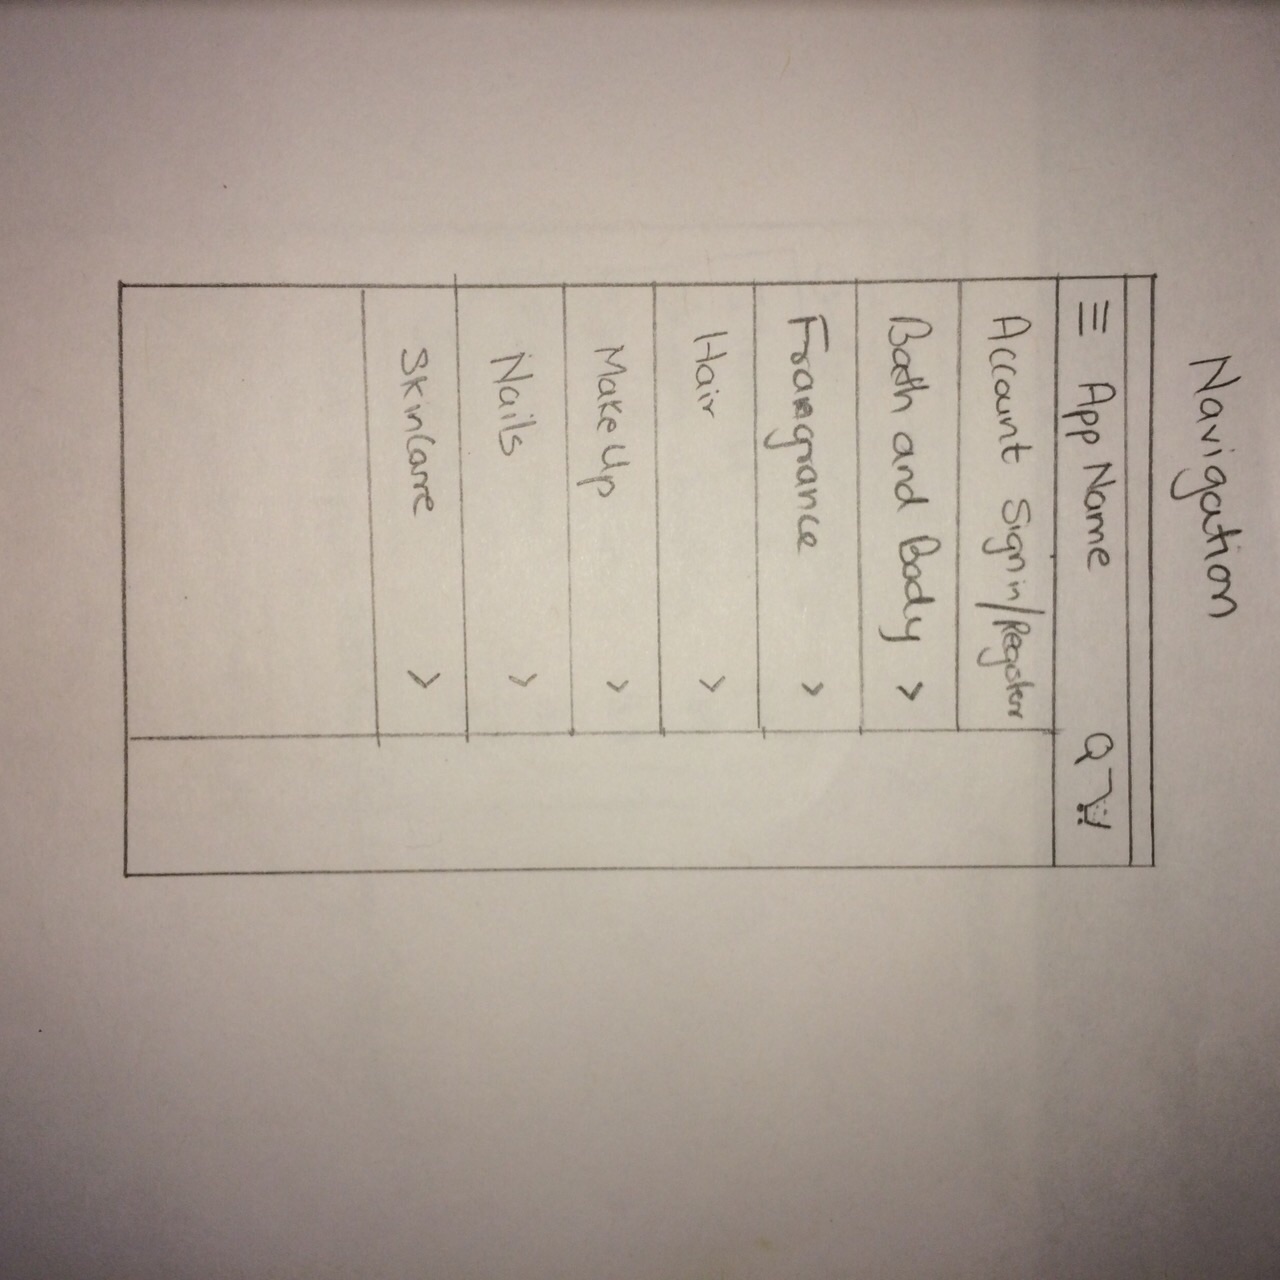 Navigation
App Name
Account Sign in/Register
Bath and Body >
Frangrance >
Hair >
MakeUp >
Nails >
SkinCare >